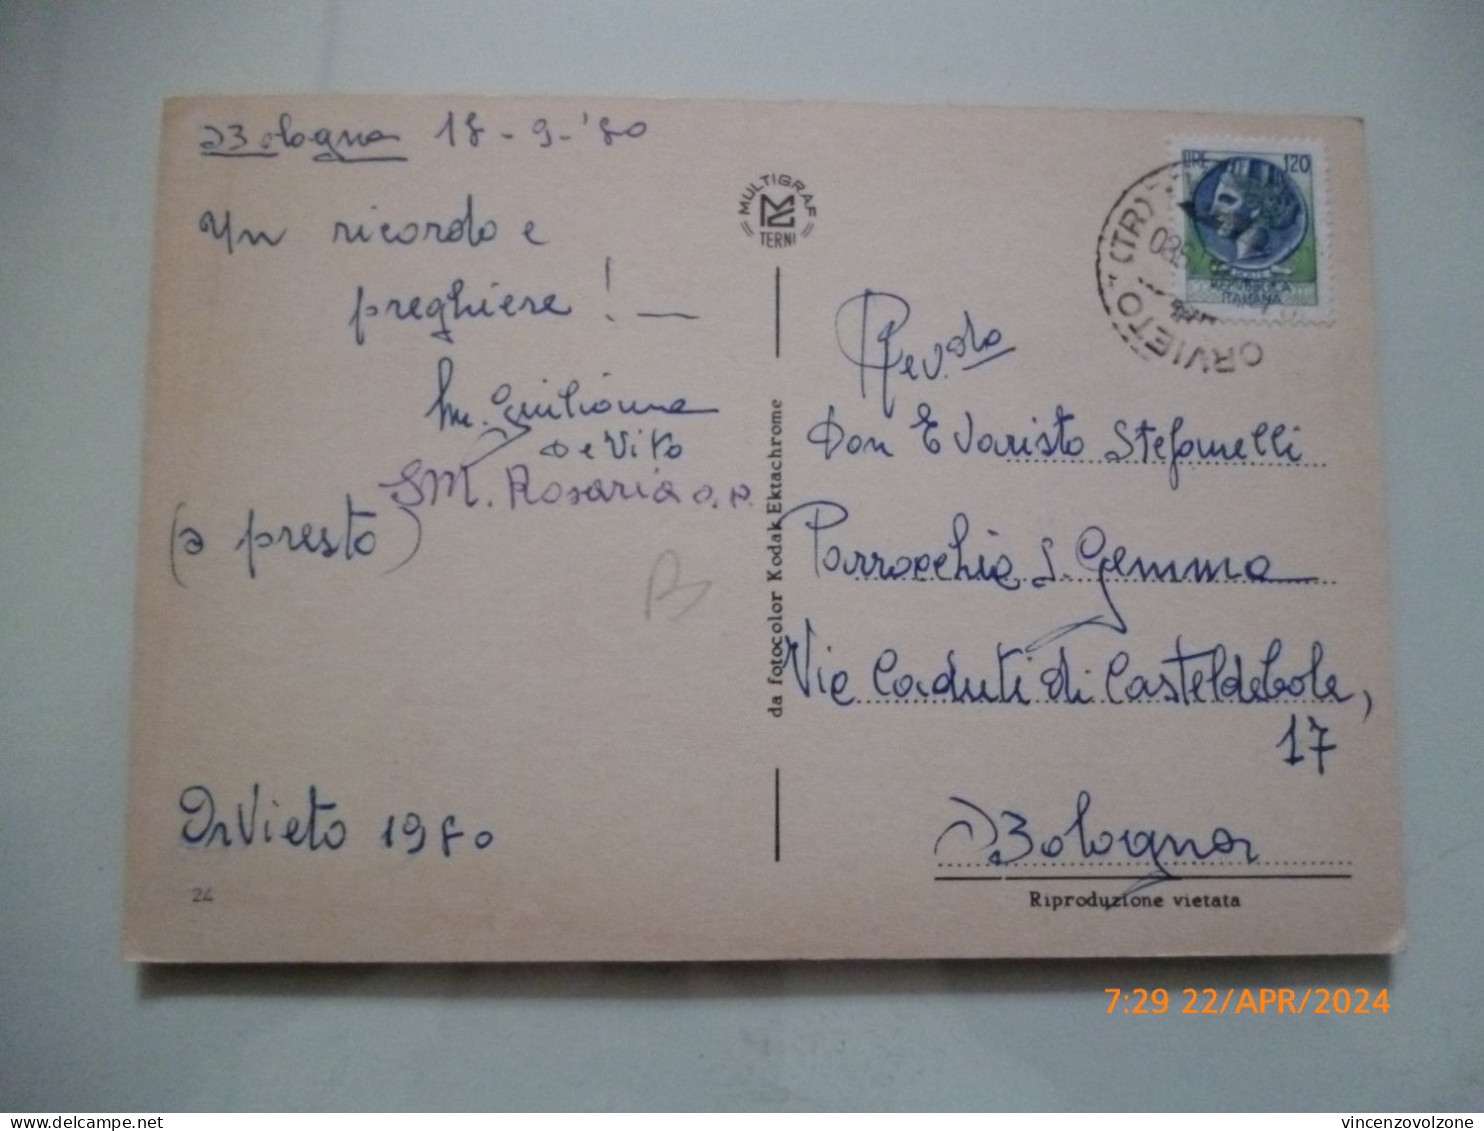 Bologna 18-9-'80
Un ricordo e
preghiere! —
M. Giuliana
De Vito
SM. Rosaria o.p.
(a presto)
B
Orvieto 1980
24
MULTIGRAF
TERNI
da fotocolor Kodak Ektachrome
LIRE 120
REPUBBLICA
ITALIANA
ORVIETO * (TR)
Rev.do
Don Evaristo Stefanelli
Parrocchia S. Gemma
Via Caduti di Casteldebole,
17
Bologna
Riproduzione vietata
7:29 22/APR/2024
vincenzovolzone